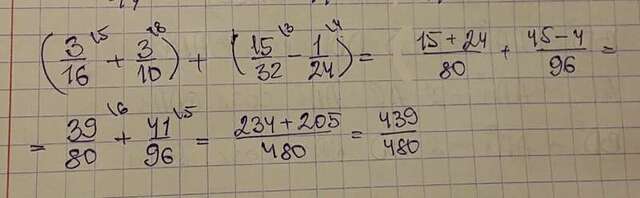 (3/16\5 + 3/10\8) + (15/32\3 − 1/24\4) = (15+24)/80 + (45−4)/96 =
= 39/80\6 + 41/96\5 = (234+205)/480 = 439/480